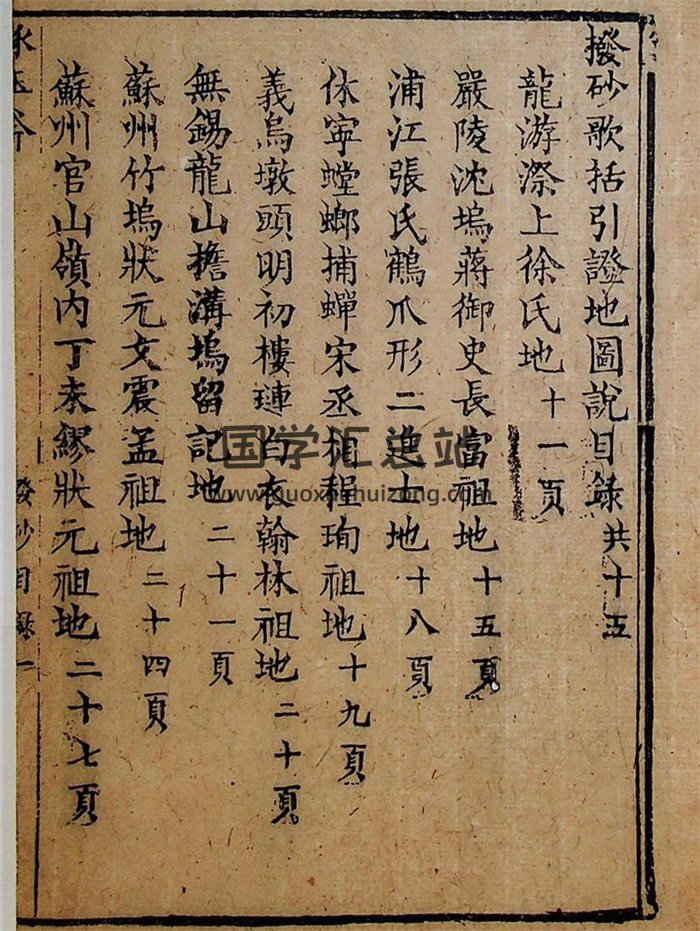 撥砂歌括引證地圖說目錄共十五
龍游漈上徐氏地十一頁
嚴陵沈塢蔣御史長富祖地十五頁
浦江張氏鶴爪形二進士地十八頁
休寧螳螂捕蟬宋丞相程珣祖地十九頁
義烏墩頭明初樓璉白衣翰林祖地二十頁
無錫龍山擔溝塢留記地二十一頁
蘇州竹塢狀元文震孟祖地二十四頁
蘇州官山嶺內丁未繆狀元祖地二十七頁
國学汇总站
www.guoxuehuizong.com